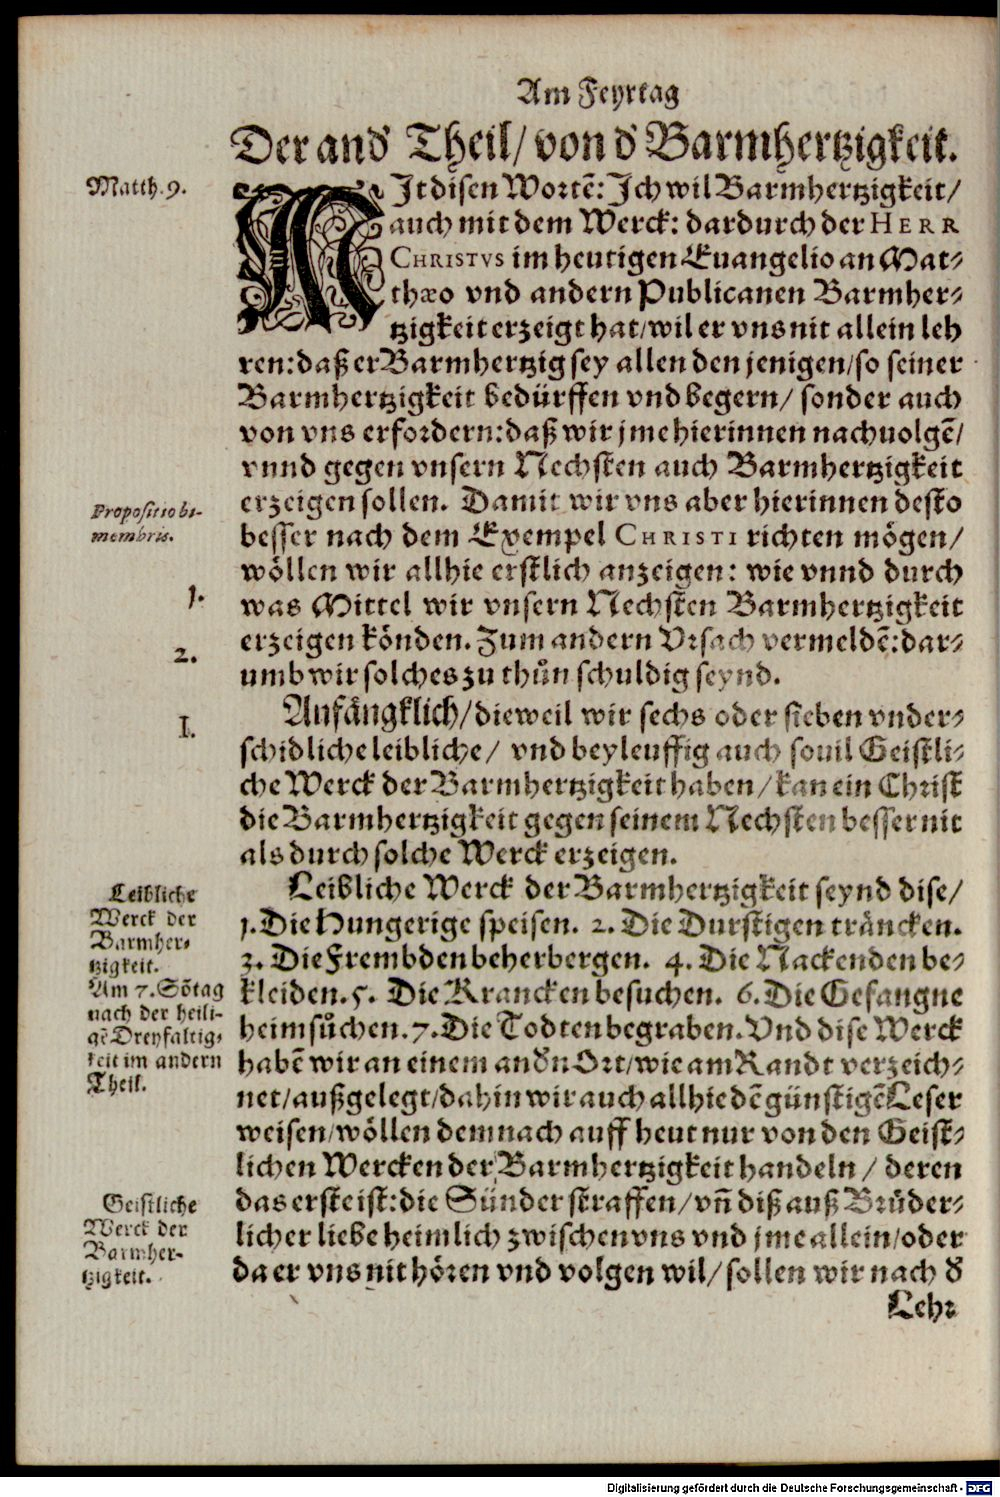 Am Feyrtag
Der and' Theil/ von d' Barmhertzigkeit.
Matth. 9.
MJt disen Wortē: Jch wil Barmhertzigkeit/
auch mit dem Werck: dardurch der HERR
CHRISTVS im heutigen Euangelio an Mat-
thæo vnd andern Publicanen Barmher-
tzigkeit erzeigt hat/ wil er vns nit allein leh
ren: daß er Barmhertzig sey allen den jenigen/ so seiner
Barmhertzigkeit bedürffen vnd begern/ sonder auch
von vns erfordern: daß wir jme hierinnen nachuolgē/
vnnd gegen vnsern Nechsten auch Barmhertzigkeit
erzeigen sollen. Damit wir vns aber hierinnen desto
Propositio bi-
membris.
besser nach dem Exempel CHRISTI richten mögen/
wöllen wir allhie erstlich anzeigen: wie vnnd durch
1.
was Mittel wir vnsern Nechsten Barmhertzigkeit
erzeigen könden. Zum andern Vrsach vermeldē: dar-
2.
umb wir solches zu thůn schuldig seynd.
I.
Anfängklich/ dieweil wir sechs oder sieben vnder-
schidliche leibliche/ vnd beyleuffig auch souil Geistli-
che Werck der Barmhertzigkeit haben/ kan ein Christ
die Barmhertzigkeit gegen seinem Nechsten besser nit
als durch solche Werck erzeigen.
Leibliche
Werck der
Barmher-
tzigkeit.
Am 7. Sōtag
nach der heili-
gē Dreyfaltig-
keit im andern
Theil.
Leibliche Werck der Barmhertzigkeit seynd dise/
1. Die Hungerige speisen. 2. Die Durstigen träncken.
3. Die Frembden beherbergen. 4. Die Nackenden be-
kleiden. 5. Die Krancken besuchen. 6. Die Gefangne
heimsůchen. 7. Die Todten begraben. Vnd dise Werck
habē wir an einem and'n Ort/ wie am Randt verzeich-
net/ außgelegt/ dahin wir auch allhie dē günstigē Leser
weisen/ wöllen demnach auff heut nur von den Geist-
lichen Wercken der Barmhertzigkeit handeln/ deren
Geistliche
Werck der
Barmher-
tzigkeit.
das erste ist: die Sünder straffen/ vn̄ diß auß Brůder-
licher liebe heimlich zwischen vns vnd jme allein/ oder
da er vns nit hören vnd volgen wil/ sollen wir nach d'
Lehr
Digitalisierung gefördert durch die Deutsche Forschungsgemeinschaft - DFG